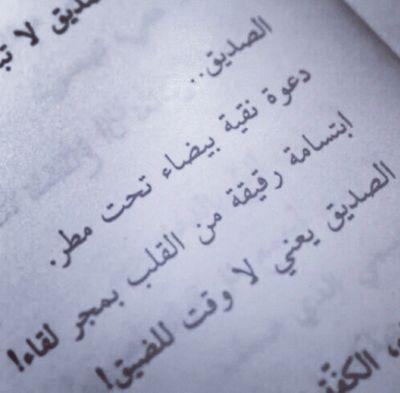 صديق لا
الصديق..
دعوة نقية بيضاء تحت مطر.
ابتسامة رقيقة من القلب بمجر لقاء!
الصديق يعني لا وقت للضيق!
الكفّة